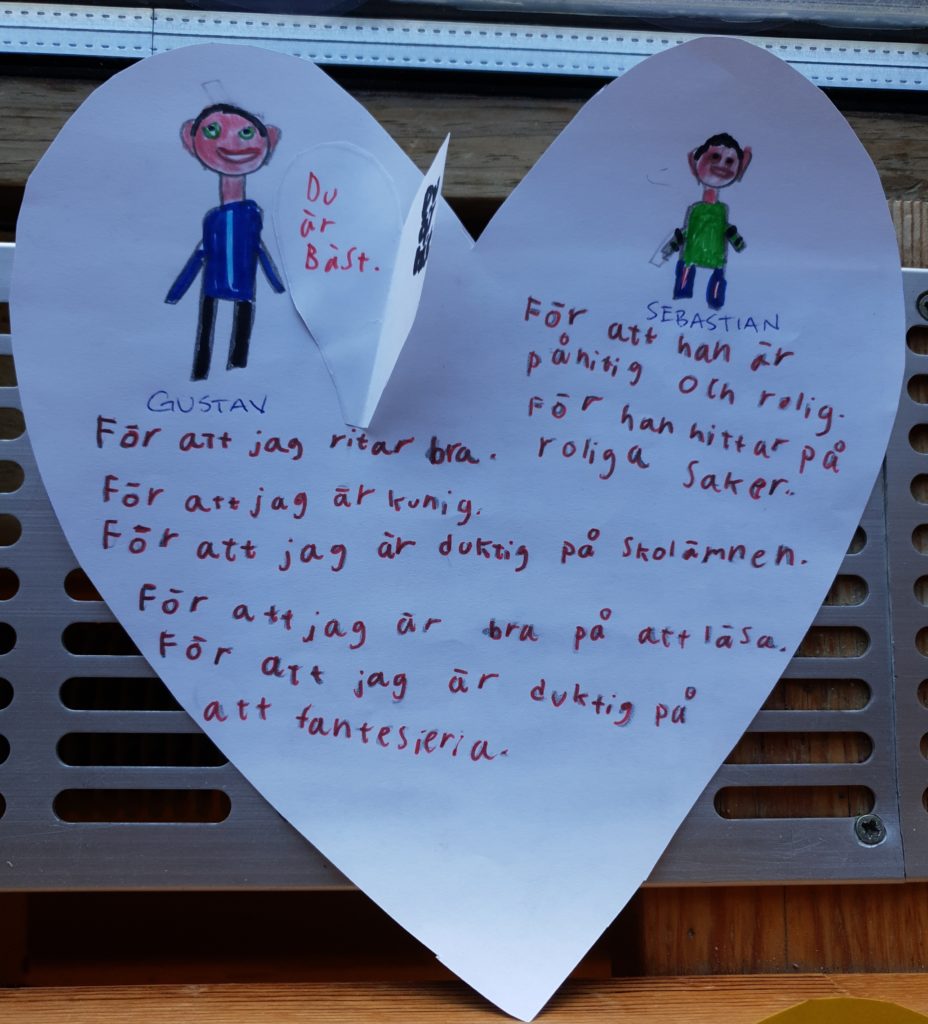 Du
är
Bäst.
GUSTAV
SEBASTIAN
För att han är
pånitig och rolig.
För han hittar på
roliga saker..
För att jag ritar bra.
För att jag är kunig.
För att jag är duktig på skolämnen.
För att jag är bra på att läsa.
För att jag är duktig på
att fantesieria.